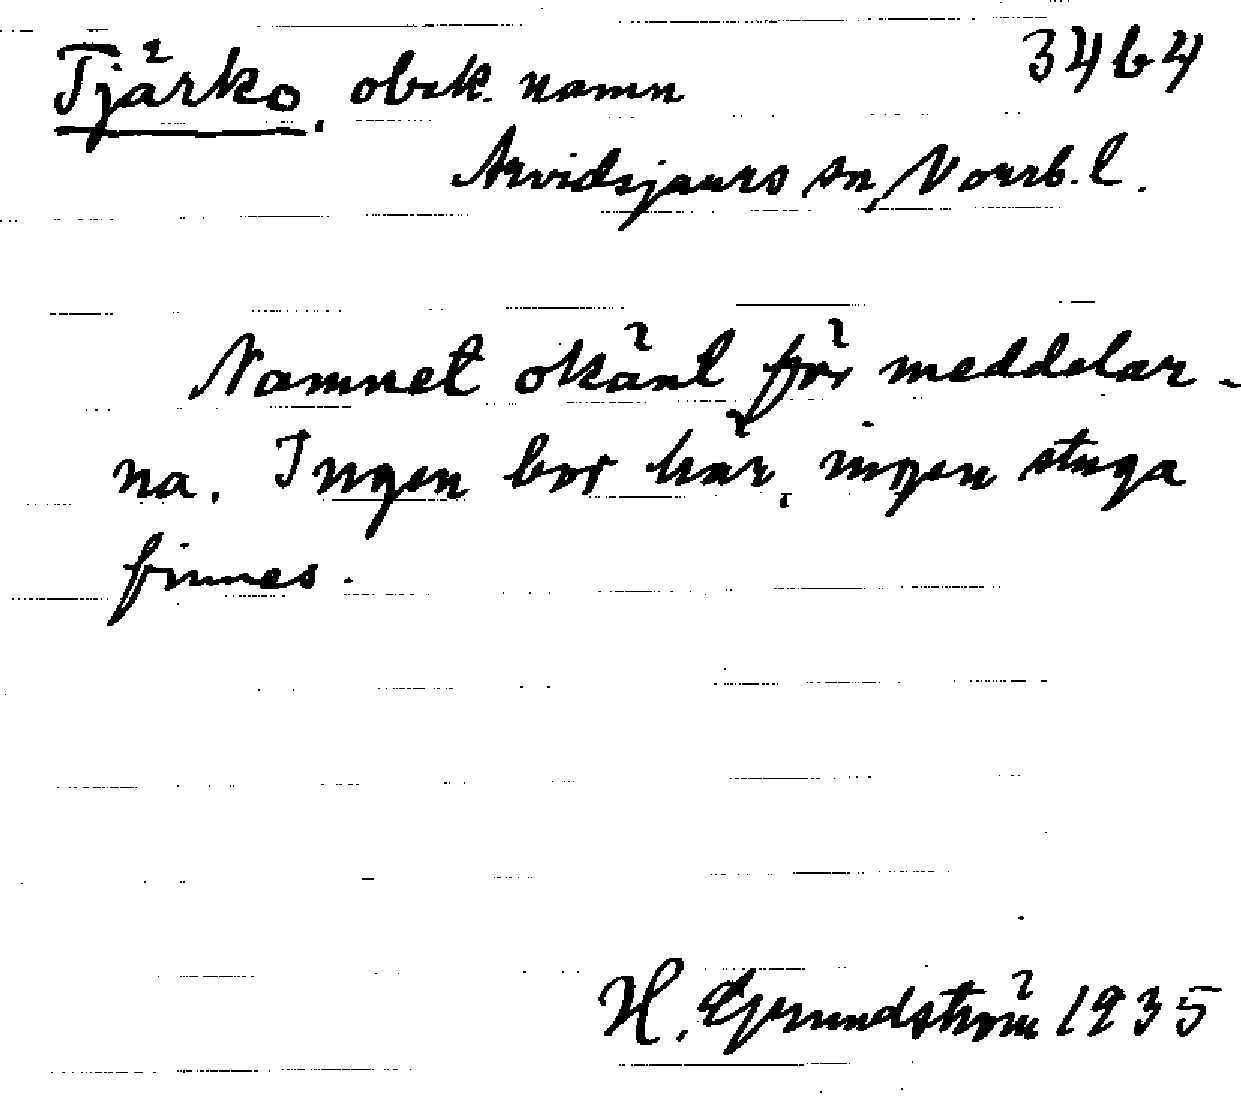 Tjärko. obek. namn 3464
Arvidsjaurs sn, Norrb. l.
Namnet okänt för meddelar-
na. Ingen bor här, ingen stuga
finnes.
H. Grundström 1935